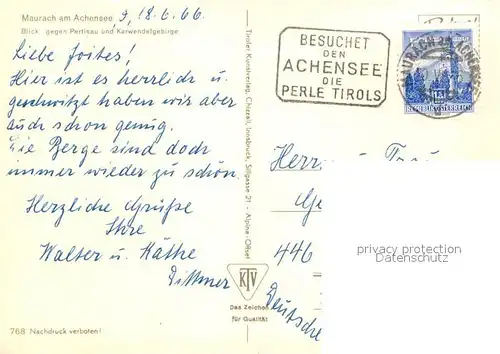 Maurach am Achensee, 9, 18.6.66
Blick gegen Pertisau und Karwendelgebirge
Liebe Joites!
Hier ist es herrlich u.
geschwitzt haben wir aber
auch schon genug.
Die Berge sind doch
immer wieder zu schön.
Herzliche Grüße
Ihre
Walter u. Käthe
Dittmer
768 Nachdruck verboten!
Tiroler Kunstverlag Chizzali, Innsbruck, Sillgasse 21 - Alpine-Offset
KTV
Das Zeichen
für Qualität
BESUCHET
DEN
ACHENSEE
DIE
PERLE TIROLS
MAURACH AM ACHENSEE
REPUBLIK ÖSTERREICH
Herrn
446
Deutsche
privacy protection
Datenschutz